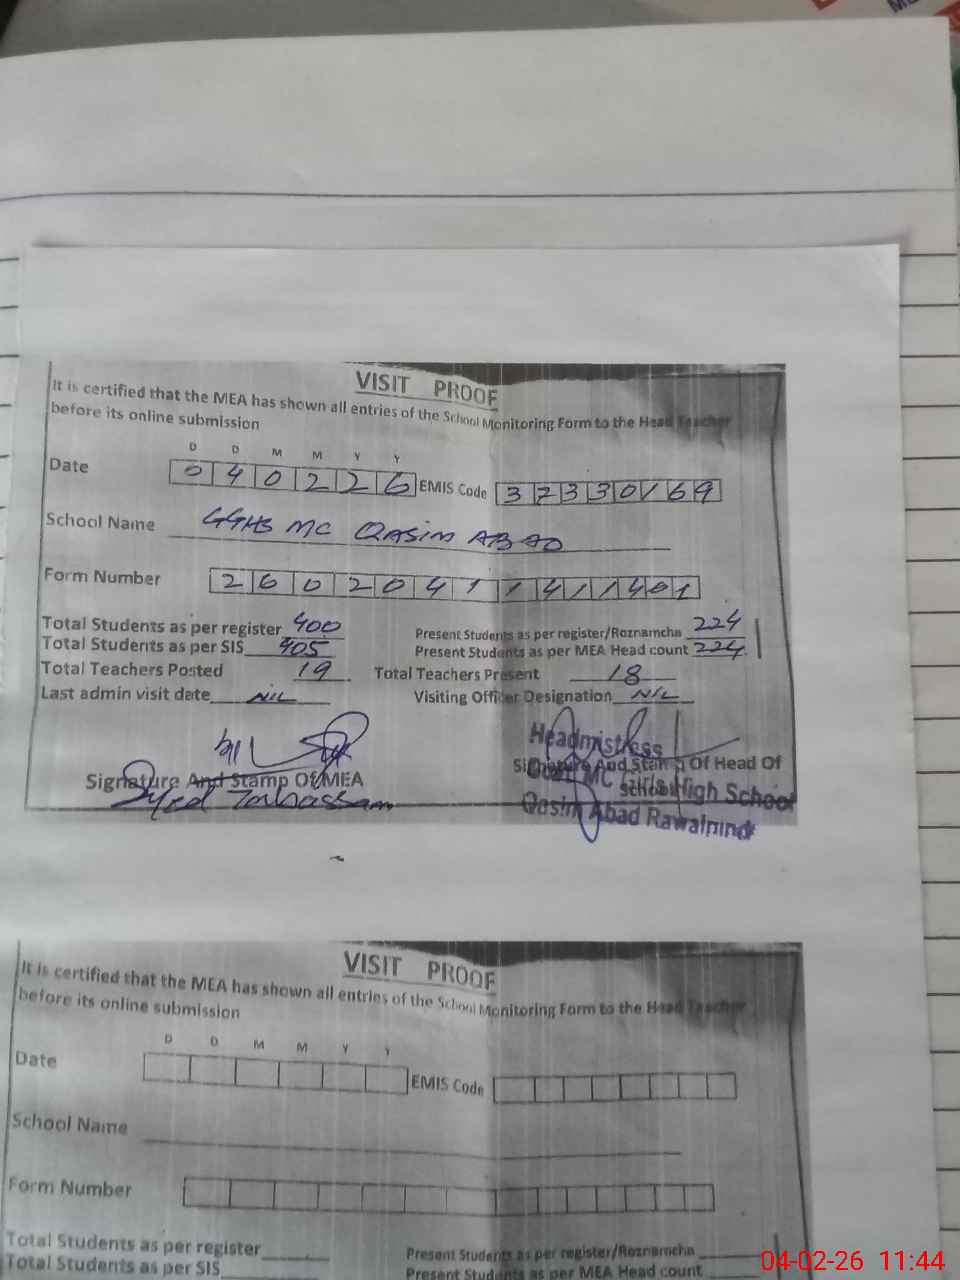 VISIT PROOF
It is certified that the MEA has shown all entries of the School Monitoring Form to the Head Teacher
before its online submission
D D M M Y Y
Date 040226 EMIS Code 37330169
School Name GGHS MC QASIM ABAD
Form Number
Total Students as per register 400 Present Students as per register/Roznamcha 224
Total Students as per SIS 405 Present Students as per MEA Head count 224
Total Teachers Posted 19 Total Teachers Present 18
Last admin visit date NIL Visiting Officer Designation NIL
Headmistress
Signature And Stamp Of MEA Signature And Stamp Of Head Of
School
MC Girls High School
Syed Tabassam
Qasim Abad Rawalpindi
VISIT PROOF
It is certified that the MEA has shown all entries of the School Monitoring Form to the Head Teacher
before its online submission
D D M M Y Y
Date EMIS Code
School Name
Form Number
Total Students as per register Present Students as per register/Roznamcha
Total Students as per SIS Present Students as per MEA Head count
04-02-26 11:44